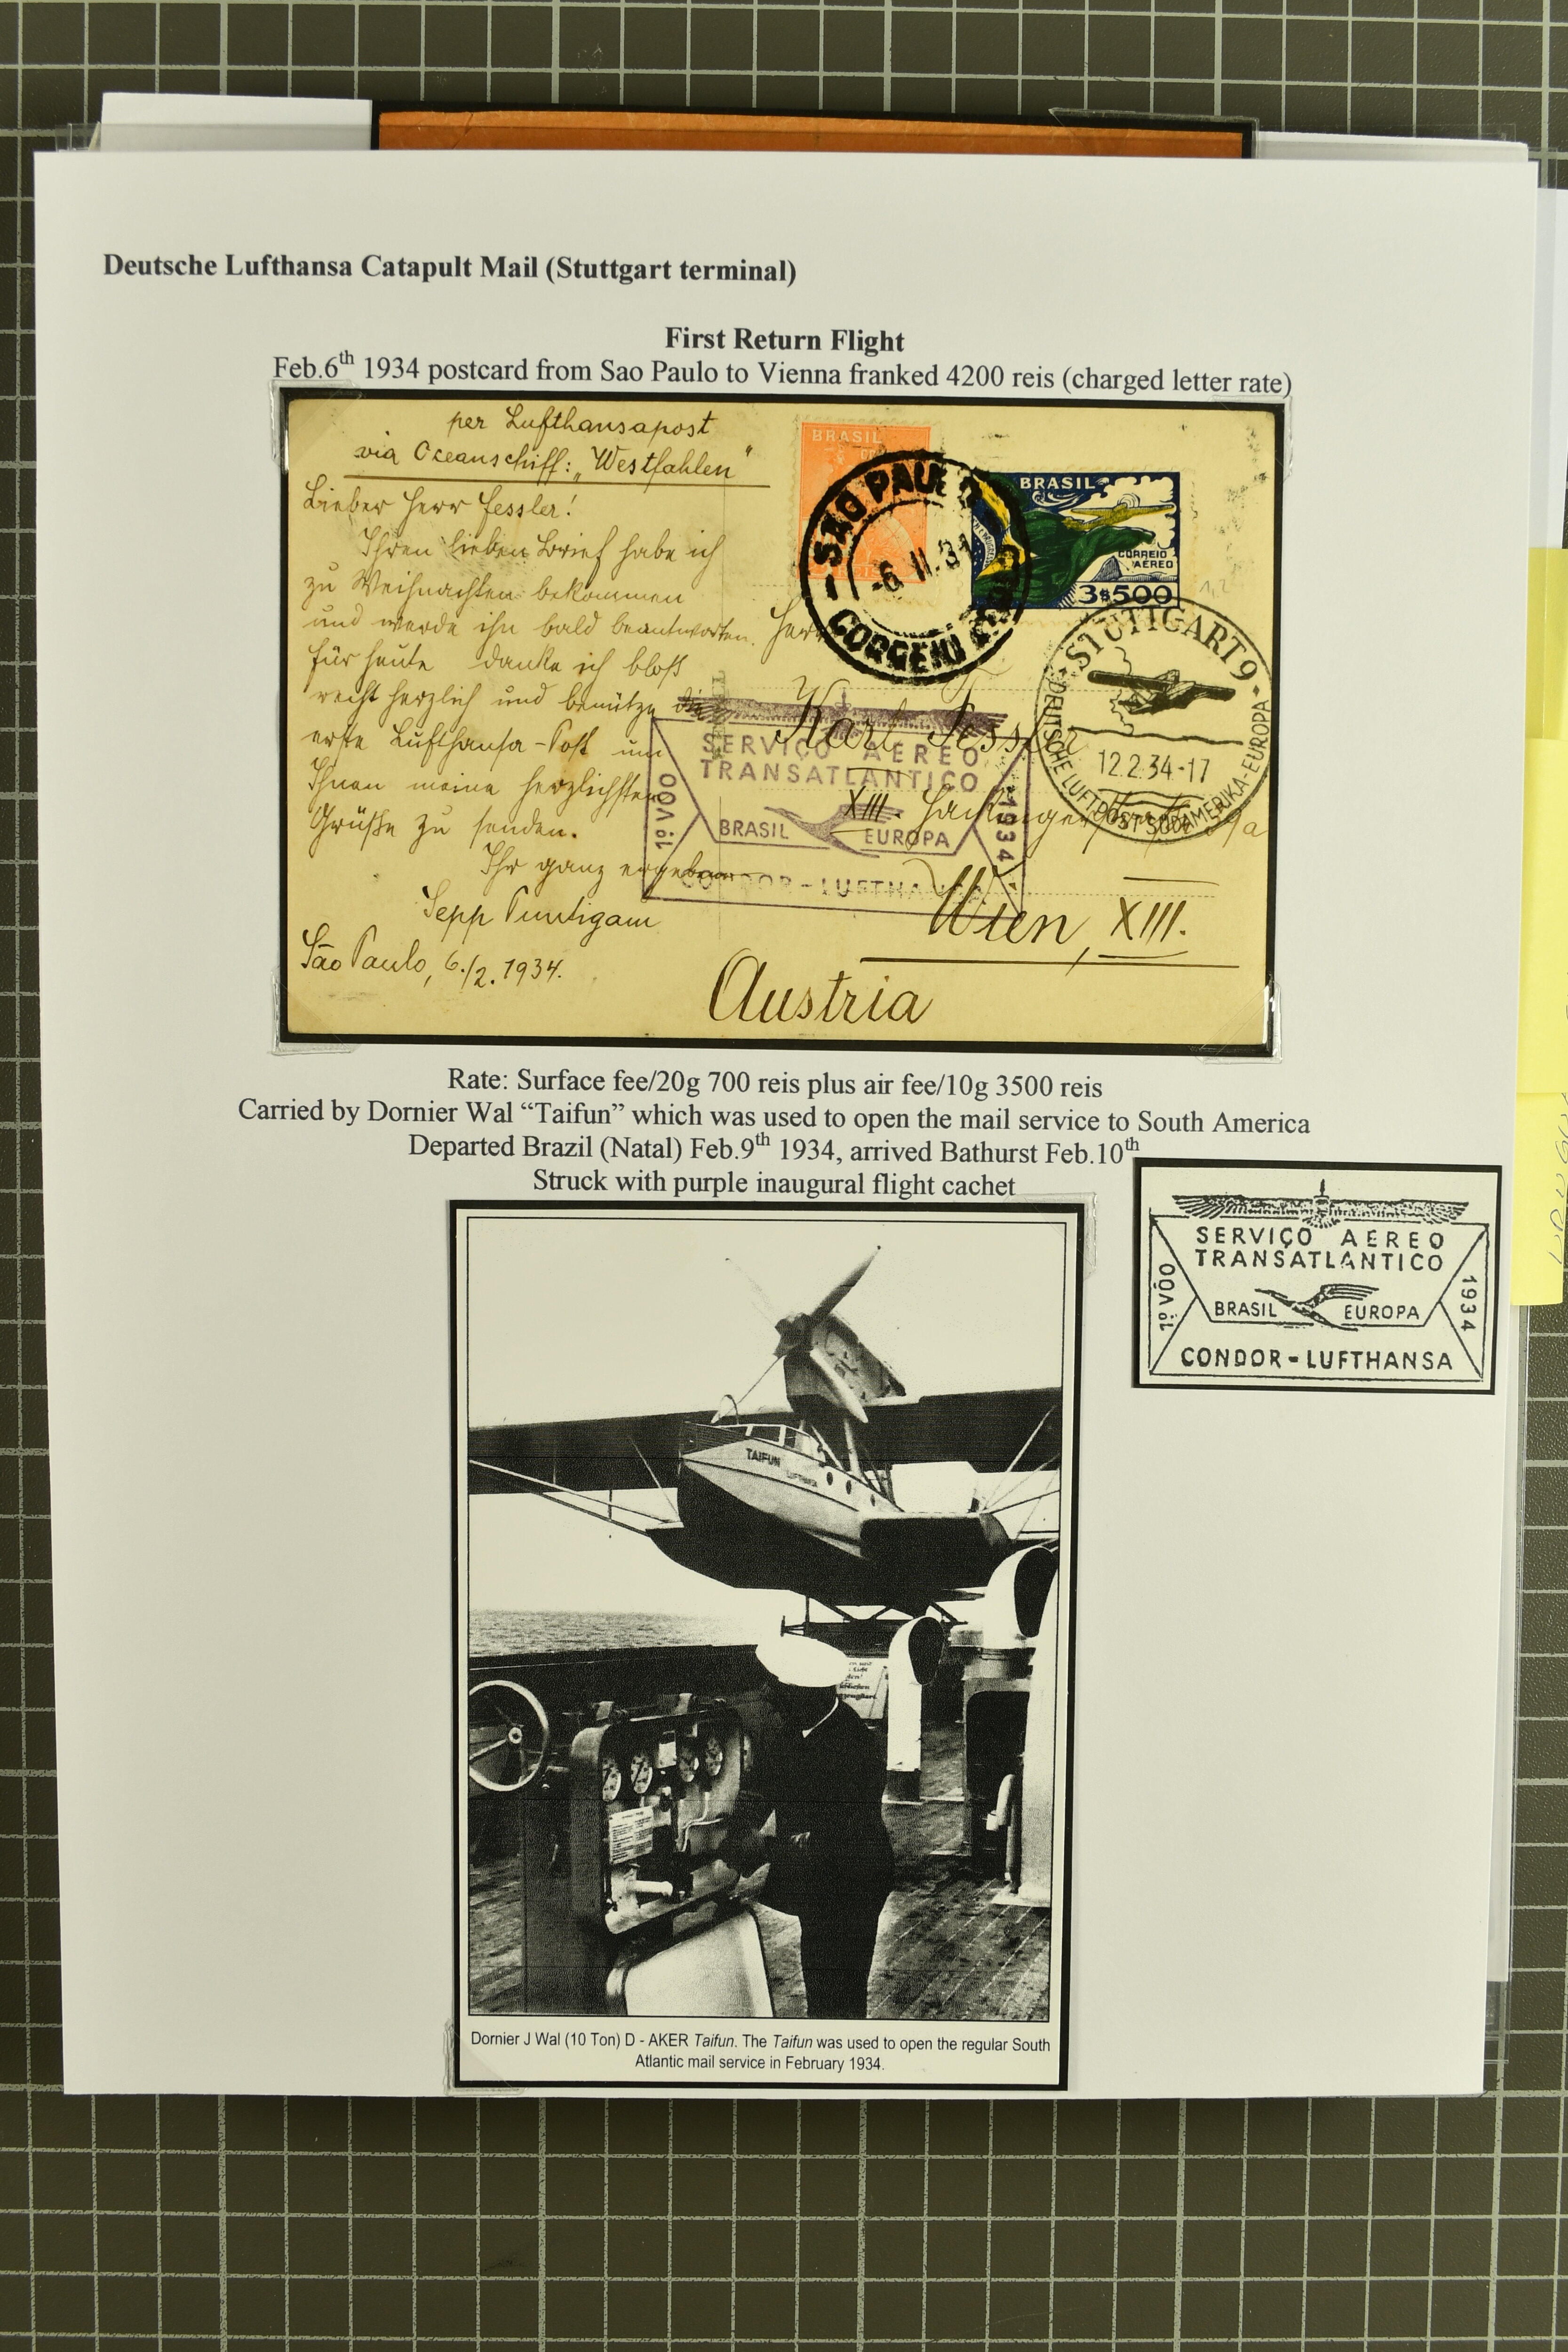 Deutsche Lufthansa Catapult Mail (Stuttgart terminal)
First Return Flight
Feb.6th 1934 postcard from Sao Paulo to Vienna franked 4200 reis (charged letter rate)
per Lufthansapost
via Oceanschiff: „Westfahlen"
Lieber Herr Fessler!
Ihren lieben Brief habe ich
zu Weihnachten bekommen
und werde ihn bald beantworten.
für heute danke ich bloß
recht herzlich und benütze die
erste Lufthansa-Post um
Ihnen meine herzlichsten
Grüße zu senden.
Ihr ganz
Sepp Puntigam
São Paulo, 6./2. 1934.
BRASIL
SAO PAULO
-6 II.34
BRASIL
CORREIO
AEREO
3$500
STUTTGART 9
12.2.34-17
DEUTSCHE LUFTPOST SÜDAMERIKA-EUROPA
Herr
Karl Fessler
XIII.
Wien, XIII.
Austria
SERVIÇO AEREO
TRANSATLANTICO
1º VÔO
BRASIL EUROPA
1934
CONDOR-LUFTHANSA
Rate: Surface fee/20g 700 reis plus air fee/10g 3500 reis
Carried by Dornier Wal “Taifun” which was used to open the mail service to South America
Departed Brazil (Natal) Feb.9th 1934, arrived Bathurst Feb.10th
Struck with purple inaugural flight cachet
SERVIÇO AEREO
TRANSATLANTICO
1º VÔO
BRASIL EUROPA
1934
CONDOR-LUFTHANSA
TAIFUN
Dornier J Wal (10 Ton) D - AKER Taifun. The Taifun was used to open the regular South
Atlantic mail service in February 1934.